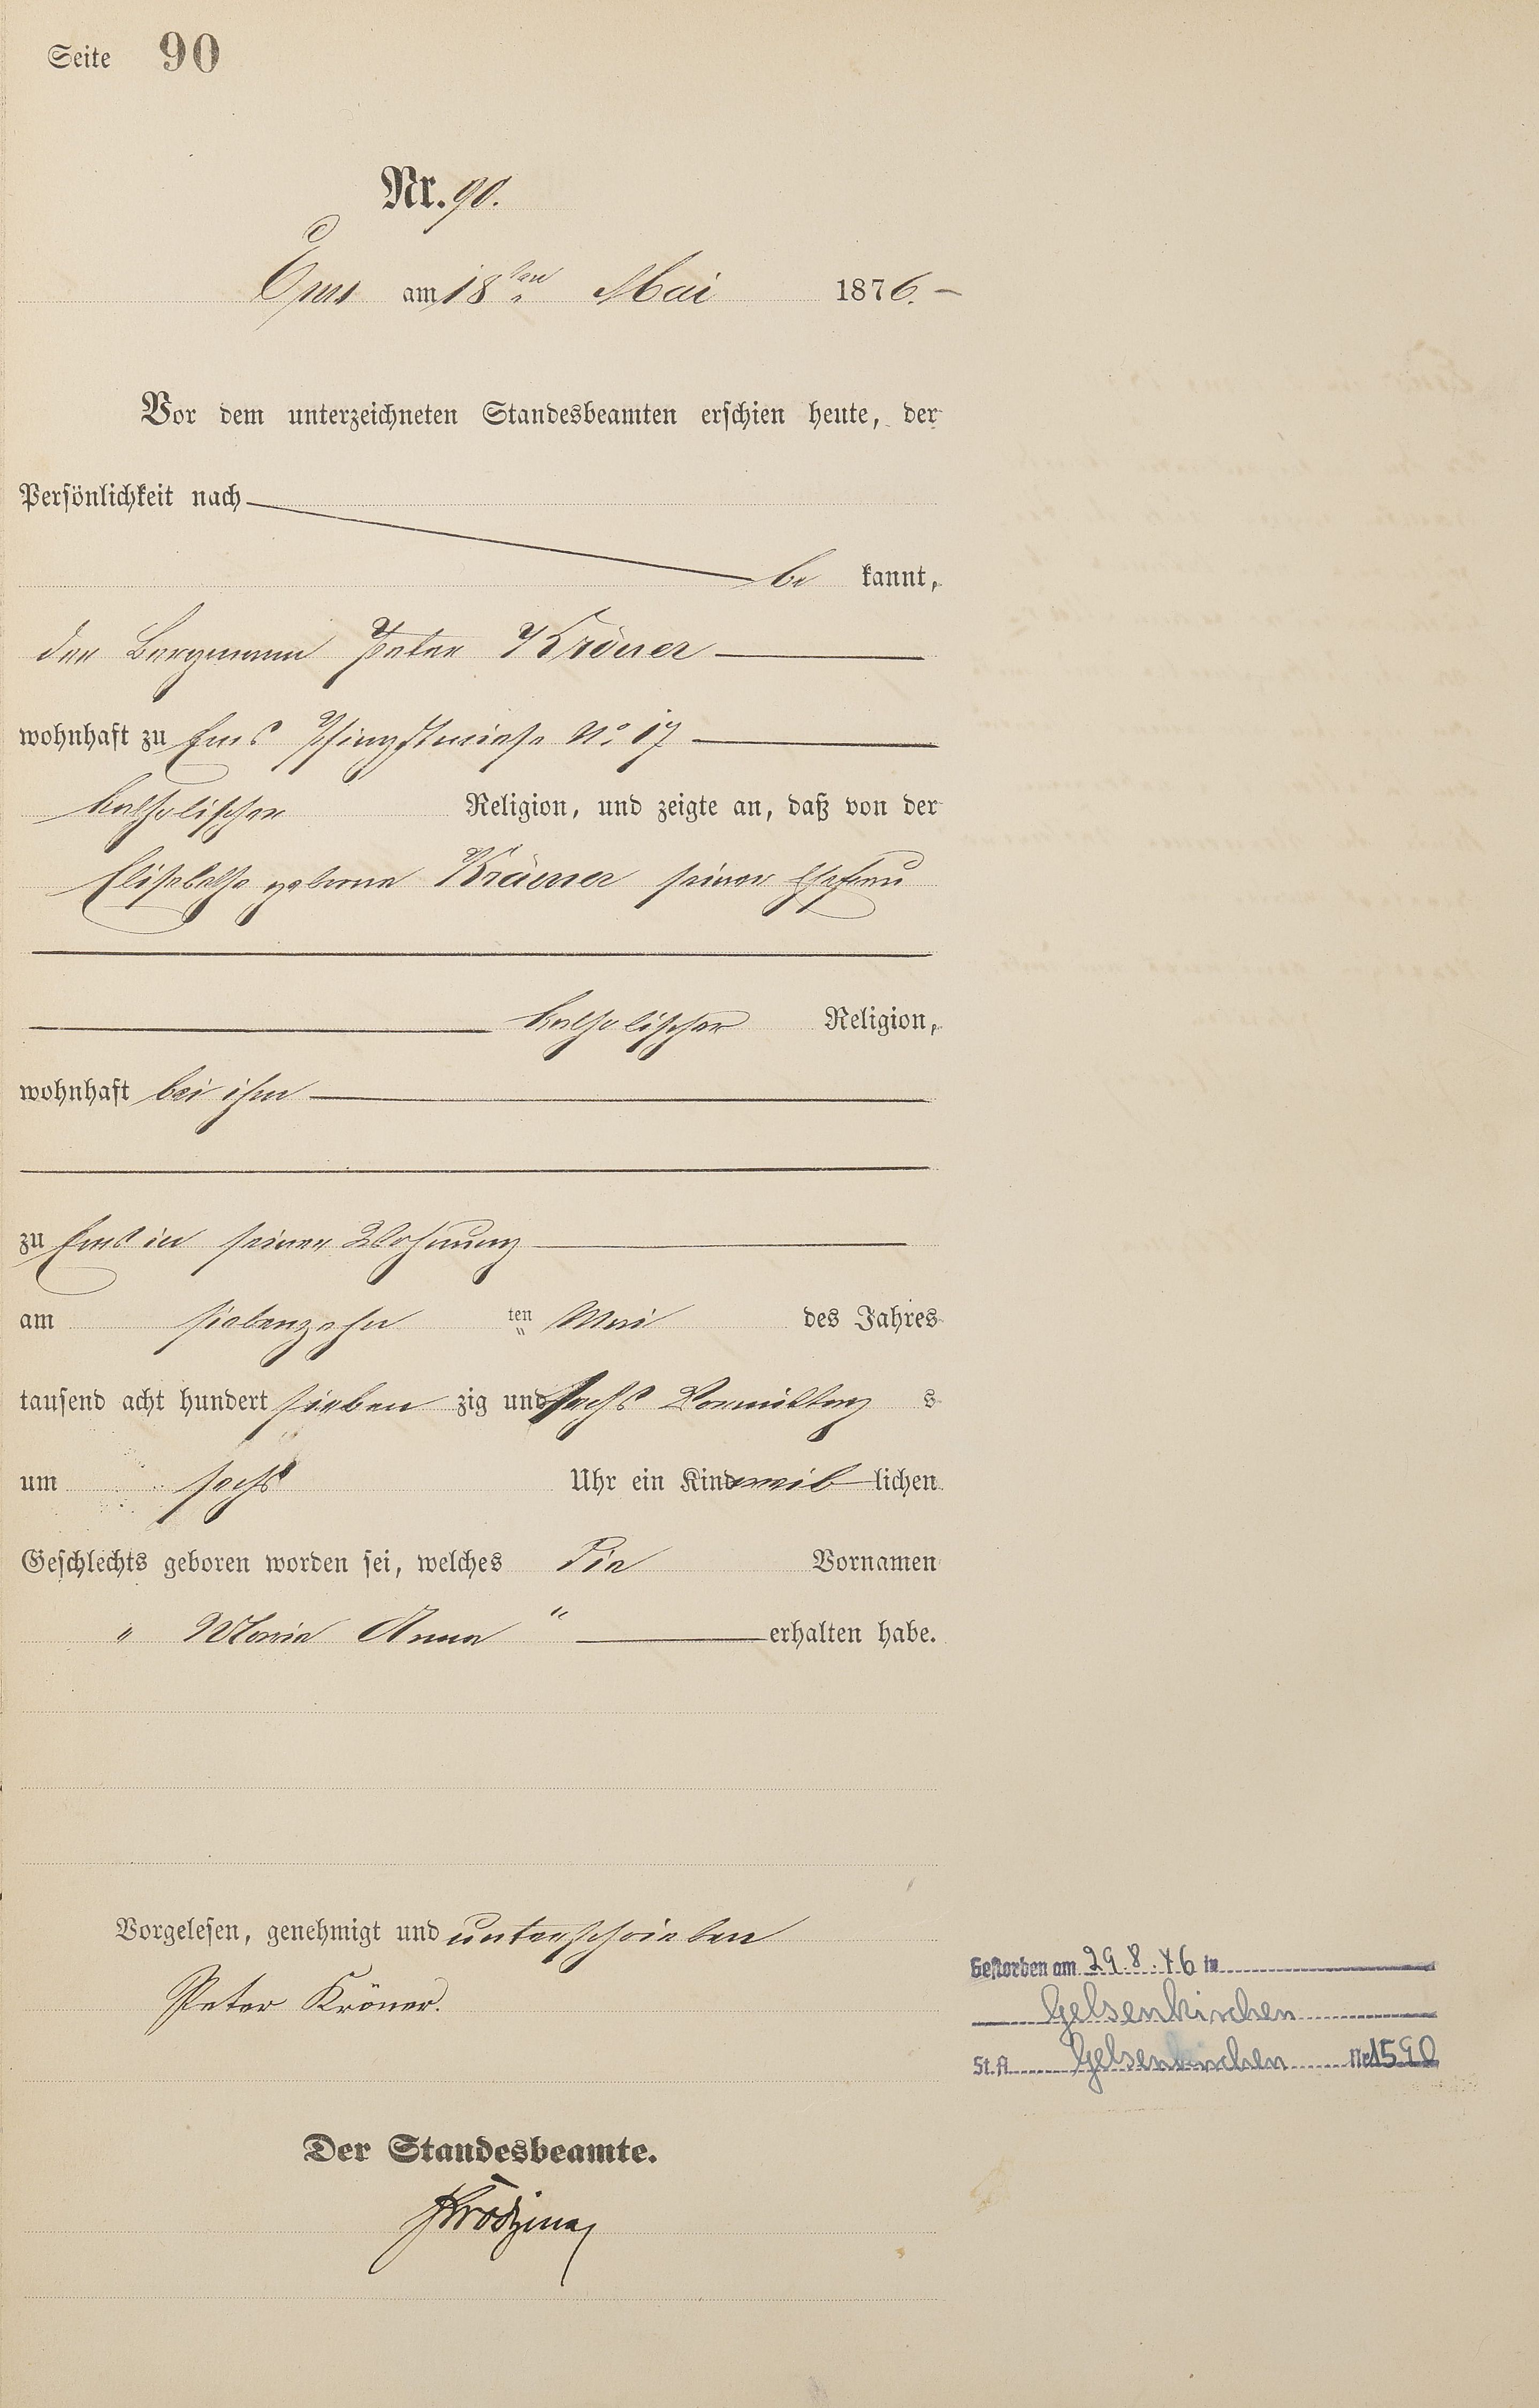 Seite 90
Nr. 90.
Ems am 18ten Mai 1876.
Vor dem unterzeichneten Standesbeamten erschien heute, der
Persönlichkeit nach
be kannt,
der Bergmann Peter Kröner
wohnhaft zu Ems Pfingstwiese No. 17
katholischer Religion, und zeigte an, daß von der
Elisabetha geborne seiner Ehefrau
katholischer Religion,
wohnhaft bei ihm
zu Ems in seiner Wohnung
am siebenzehn ten Mai des Jahres
tausend acht hundert sieben zig und sechs Vormittag s
um sechs Uhr ein Kind weib lichen
Geschlechts geboren worden sei, welches die Vornamen
" Maria Anna " erhalten habe.
Vorgelesen, genehmigt und unterschrieben
Peter Kröner.
Der Standesbeamte.
Gestorben am 29.8.46 in
Gelsenkirchen
St.A. Gelsenkirchen Nr. 1590